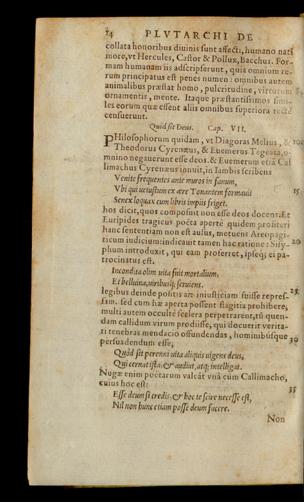 14 PLVTARCHI DE
collata honoribus diuinis sunt affecti, humano nati
more, vt Hercules, Castor & Pollux, Bacchus. For-
mam humanam iis adscripserunt, quia omnium re-
rum principatus est penes numen: omnibus autem
animalibus præstat homo, pulcritudine, virtutum
ornamentis, mente. Itaque præstantissimos simi-
les eorum quæ essent aliis omnibus superiora recte
censuerunt.
Quid sit Deus. Cap. VII.
PHilosophorum quidam, vt Diagoras Melius, &
Theodorus Cyrenæus, & Euemerus Tegeata, o-
mnino negauerunt esse deos. & Euemerum etiã Cal
limachus Cyrenæus innuit, in Iambis scribens
Venite frequentes ante muros in fanum,
Vbi qui uetustum ex ære Tonantem formauit 15
Senex loquax cum libris impiis friget.
hos dicit, quos composuit non esse deos docens. Et
Euripides tragicus poëta aperte quidem profiteri
hanc sententiam non est ausus, metuens Areopagi-
ticum iudicium: indicauit tamen hac ratione: Sisy- 20
phum introduxit, qui eam proferret, ipseq; ei pa-
trocinatus est.
Incondita olim vita fuit mortalium,
Et belluina, uiribusq; seruiens.
legibus deinde positis ait iniustitiam fuisse repres- 25
sam. sed cum hæ aperta possent flagitia prohibere,
multi autem occulte scelera perpetrarent, tũ quen-
dam callidum virum prodiisse, qui docuerit verita-
ti tenebras mendacio offundendas, hominibusque
persuadendum esse, 30
Quòd sit perenni uita aliquis uigens deus,
Qui cernat ista, & audiat, atq; intelligat.
Nugæ enim poëtarum valeãt vnà cum Callimacho,
cuius hoc est:
Esse deum si credis, & hoc te scire necesse est, 35
Nil non hunc etiam posse deum facere.
Non